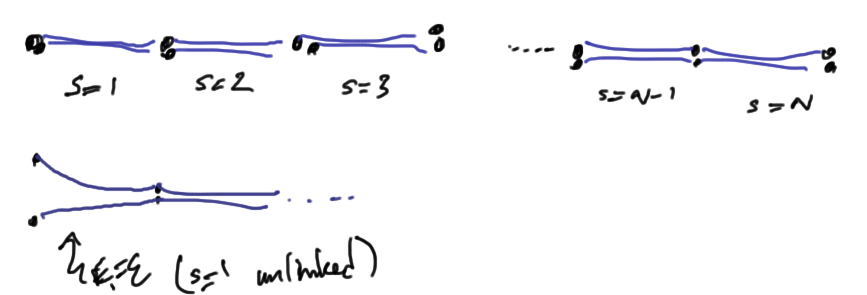 s=1 s=2 s=3 ..... s=N-1 s=N
.....
ε=ε (s=1 unlinked)